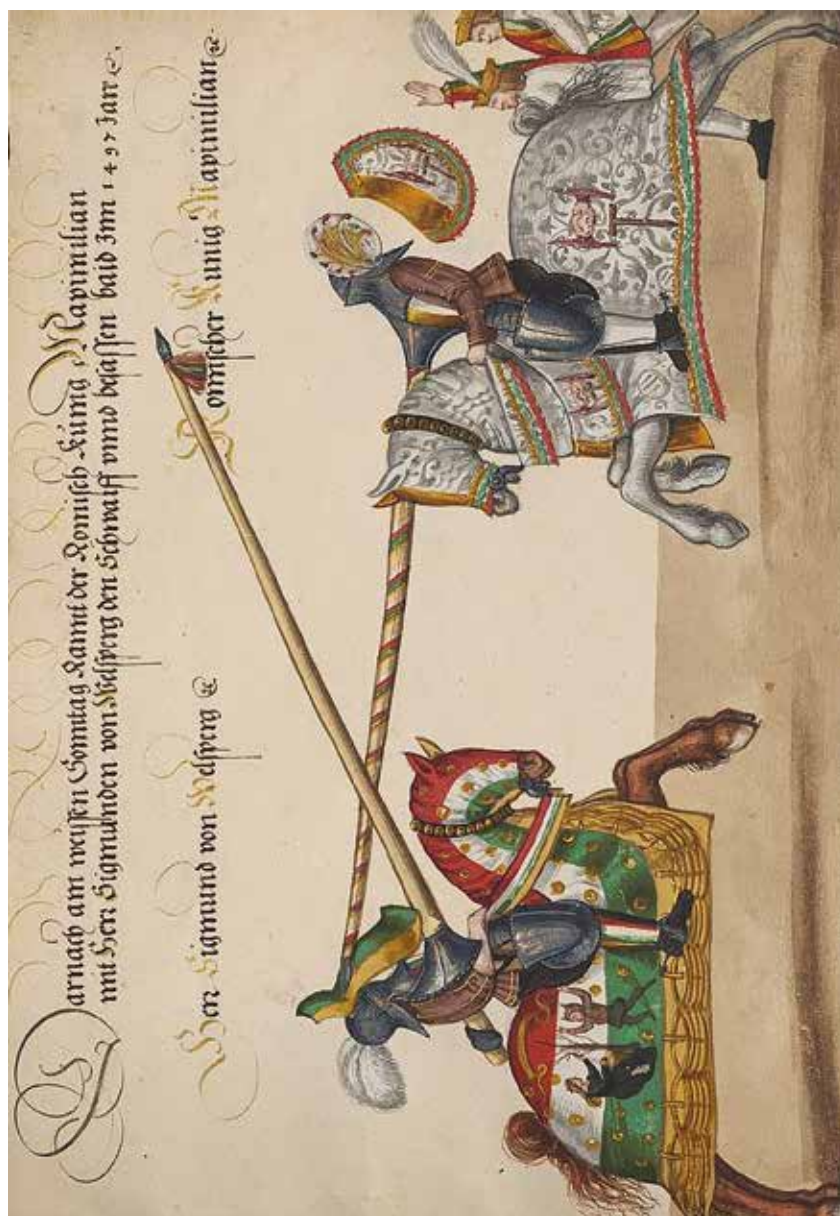 Darnach am weyssen Sonntag Rannt der Romisch Kunig Maximilian
mit Herr Sigmunden von Welsperg den Schwaiff vnnd besassen baid Inn 1497 Jarr &.
Herr Sigmund von Welsperg &
Romischer Kunig Maximilian &